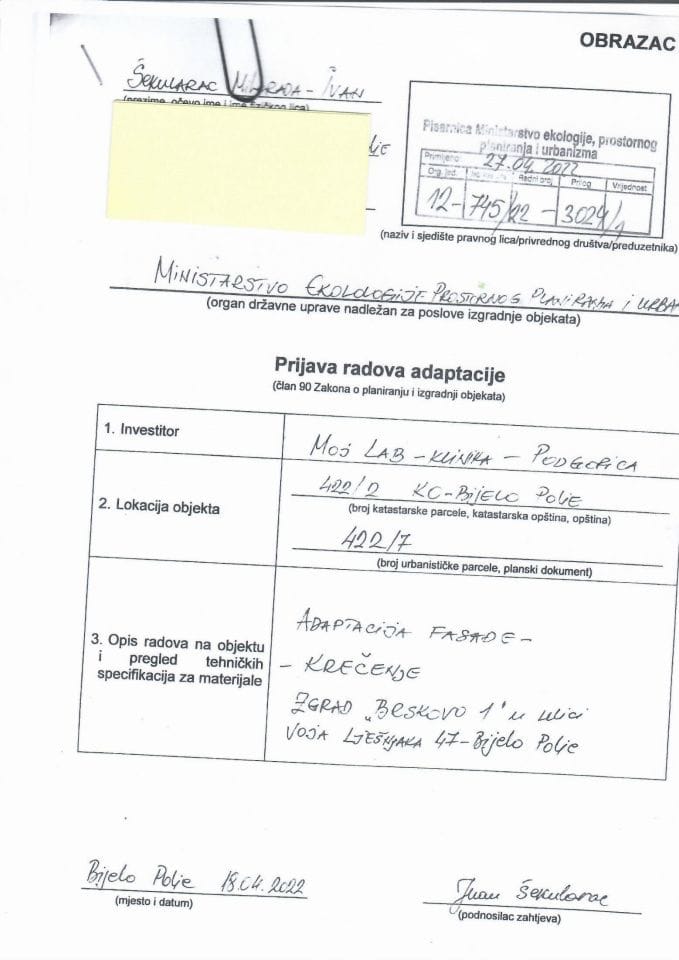 OBRAZAC
ŠEKULARAC - IVAN
(prezime, očevo ime i ime fizičkog lica)
Pisarnica Ministarstvo ekologije, prostornog
planiranja i urbanizma
Primljeno: 27.04 2022
Org. jed. Radni broj Prilog Vrijednost
12- 745/22 - 3024/1
(naziv i sjedište pravnog lica/privrednog društva/preduzetnika)
MINISTARSTVO EKOLOGIJE PROSTORNOG PLANIRANJA I URBA
(organ državne uprave nadležan za poslove izgradnje objekata)
Prijava radova adaptacije
(član 90 Zakona o planiranju i izgradnji objekata)
1. Investitor
MOJ LAB - KLINIKA - PODGORICA
2. Lokacija objekta
422/2 KO-BIJELO POLJE
(broj katastarske parcele, katastarska opština, opština)
422/7
(broj urbanističke parcele, planski dokument)
3. Opis radova na objektu
i pregled tehničkih
specifikacija za materijale
ADAPTACIJA FASADE -
- KREČENJE
ZGRAD „BRSKOVO 1" u ulici
VOJA LJEŠNJAKA 47-Bijelo Polje
Bijelo Polje 18.04.2022
(mjesto i datum)
Ivan Šekularac
(podnosilac zahtjeva)